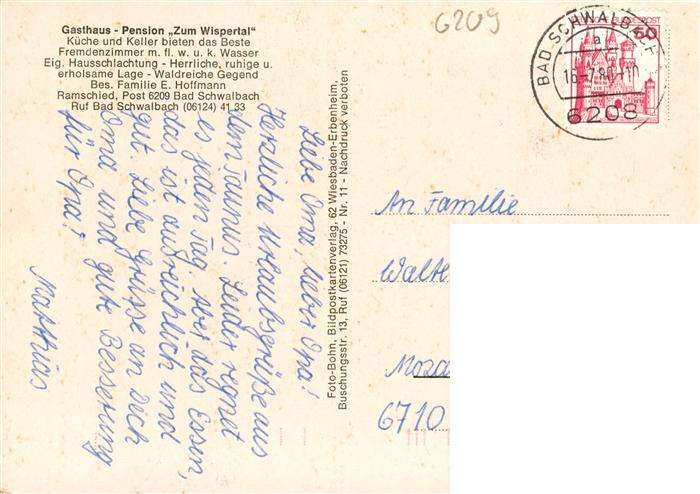 Gasthaus - Pension „Zum Wispertal“
Küche und Keller bieten das Beste
Fremdenzimmer m. fl. w. u. k. Wasser
Eig. Hausschlachtung - Herrliche, ruhige u.
erholsame Lage - Waldreiche Gegend
Bes. Familie E. Hoffmann
Ramschied, Post 6209 Bad Schwalbach
Ruf Bad Schwalbach (06124) 41 33
Liebe Oma, lieber Opa!
Herzliche Urlaubsgrüße aus
dem Taunus. Leider regnet
es jeden Tag. Aber das Essen,
das ist aufreichlich und
gut. Liebe Grüsse an Dich
Oma und gute Besserung
für Opa!
Matthias
Foto-Bohn, Bildpostkartenverlag, 62 Wiesbaden-Erbenheim,
Buschungsstr. 13, Ruf (06121) 73275 - Nr. 11 - Nachdruck verboten
6209
BAD SCHWALBACH
a
16.-7.80-11
6208
BUNDESPOST
50
An Familie
Walte
Moza
6710